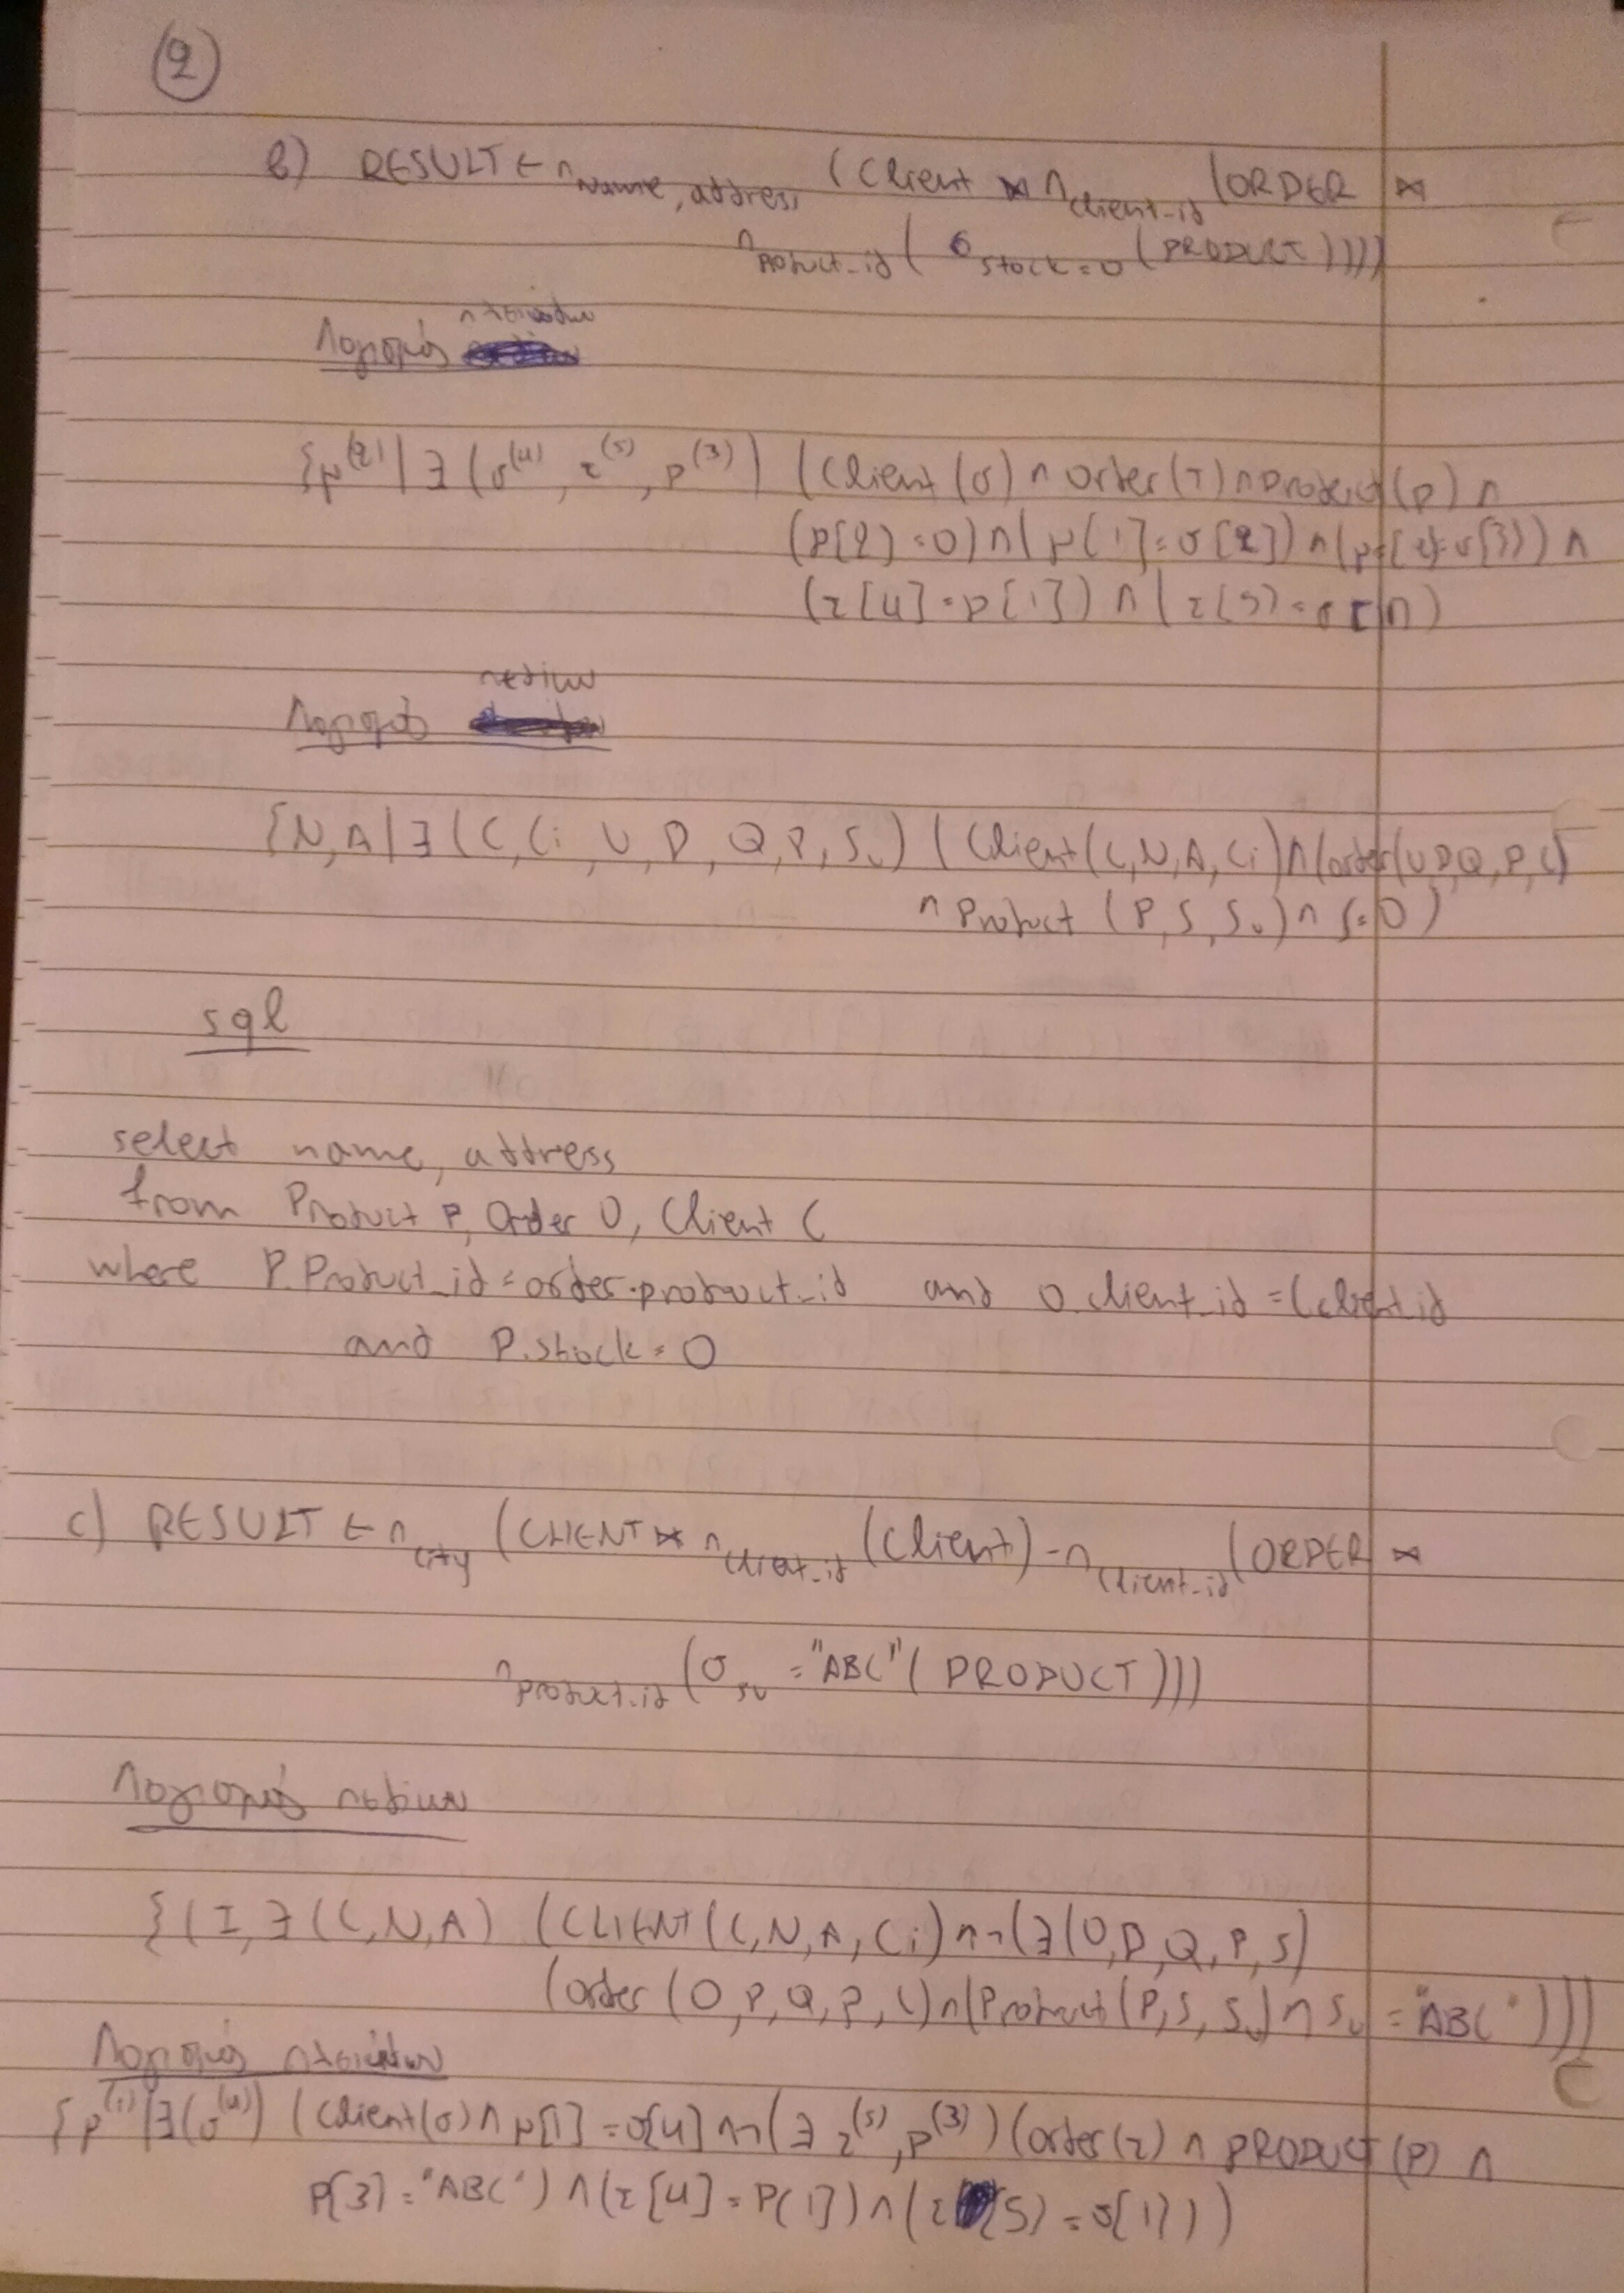 (2)
b) RESULT ← π name, address (Client ⋈ π client_id (ORDER ⋈
π Product_id ( σ stock=0 (PRODUCT))))
Λογισμός πλειάδων
{μ^(2) | ∃ (σ^(4), τ^(5), ρ^(3)) (Client (σ) ∧ order(τ) ∧ product(ρ) ∧
(ρ[2] = 0) ∧ (μ[1] = σ[2]) ∧ (μ[2] = σ[3]) ∧
(τ[4] = ρ[1]) ∧ (τ[5] = σ[1])
Λογισμός πεδίων
{N, A | ∃ (C, Ci, O, D, Q, P, Su) (Client(C,N,A,Ci) ∧ (order(O,D,Q,P,C)
∧ Product (P, S, Su) ∧ S=0)
sql
select name, address
from Product P, Order O, Client C
where P.Product_id = order.product_id and O.client_id = C.client_id
and P.stock = 0
c) RESULT ← π city (CLIENT ⋈ π client_id (Client) - π client_id (ORDER ⋈
π product_id (σ su = "ABC" (PRODUCT)))
Λογισμός πεδίων
{CI, ∃ (C,N,A) (CLIENT (C,N,A,Ci) ∧ ¬ (∃ (O,D,Q,P,S)
(order (O,P,Q,P,C) ∧ (Product (P,S,Su) ∧ Su = "ABC")))
Λογισμός πλειάδων
{μ^(1) | ∃(σ^(4)) (Client(σ) ∧ μ[1] = σ[4] ∧ ¬ (∃ τ^(5), ρ^(3)) (order(τ) ∧ PRODUCT (ρ) ∧
ρ[3] = "ABC") ∧ (τ[4] = ρ[1]) ∧ (τ[5] = σ[1]))